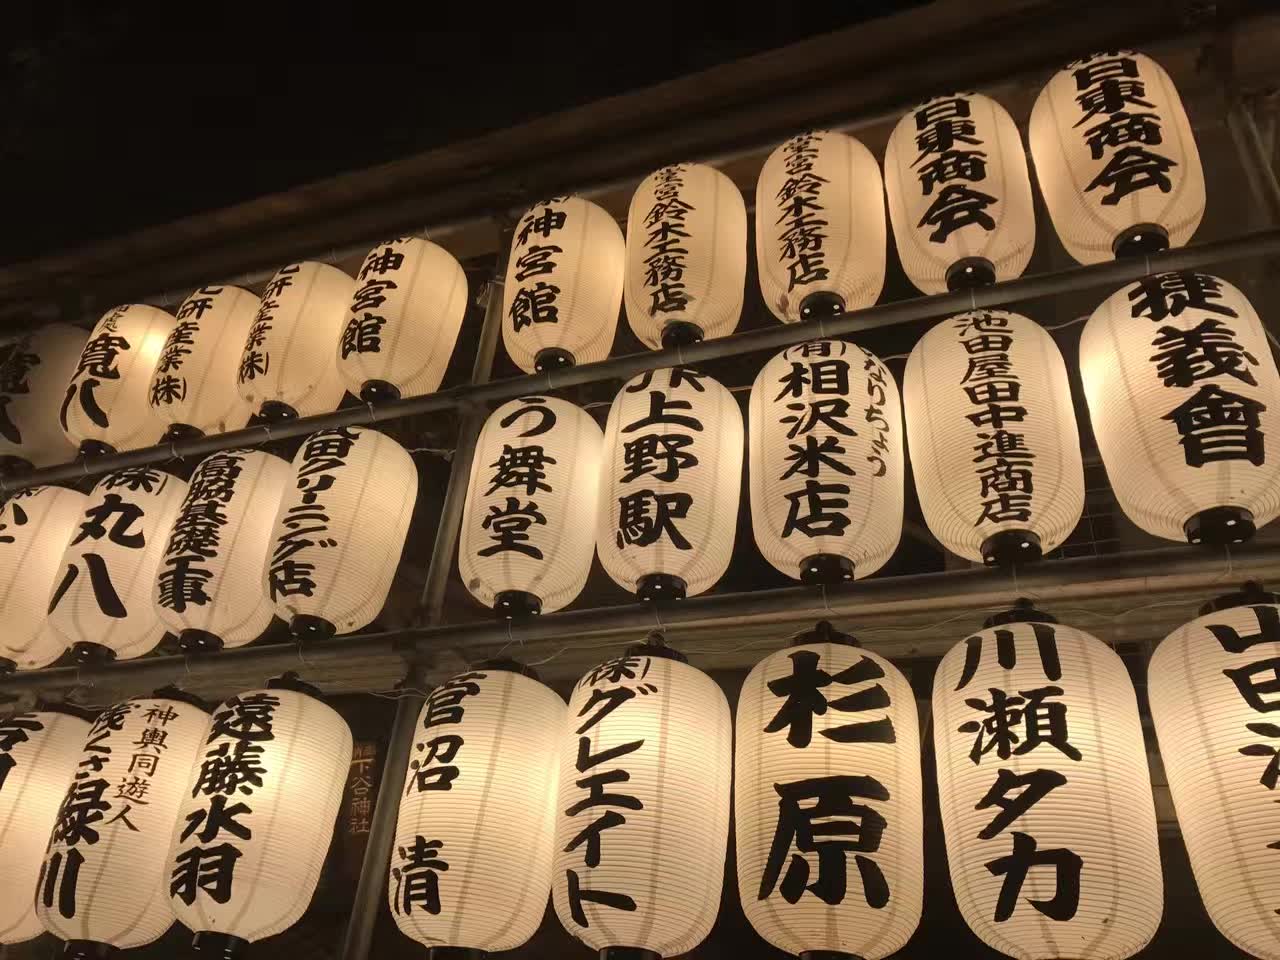 寛八
研産業(株)
研産業(株)
神宮館
神宮館
堂宮鈴木工務店
堂宮鈴木工務店
日東商会
日東商会
(株)丸八
高脇基礎工事
クリーニング店
う舞堂
JR上野駅
(有)相沢米店
なりちょう
池田屋田中進商店
捷義會
神輿同遊人
浅くさ緑川
遠藤水羽
下谷神社
菅沼 清
(株)グレエイト
杉原
川瀬タカ
山田